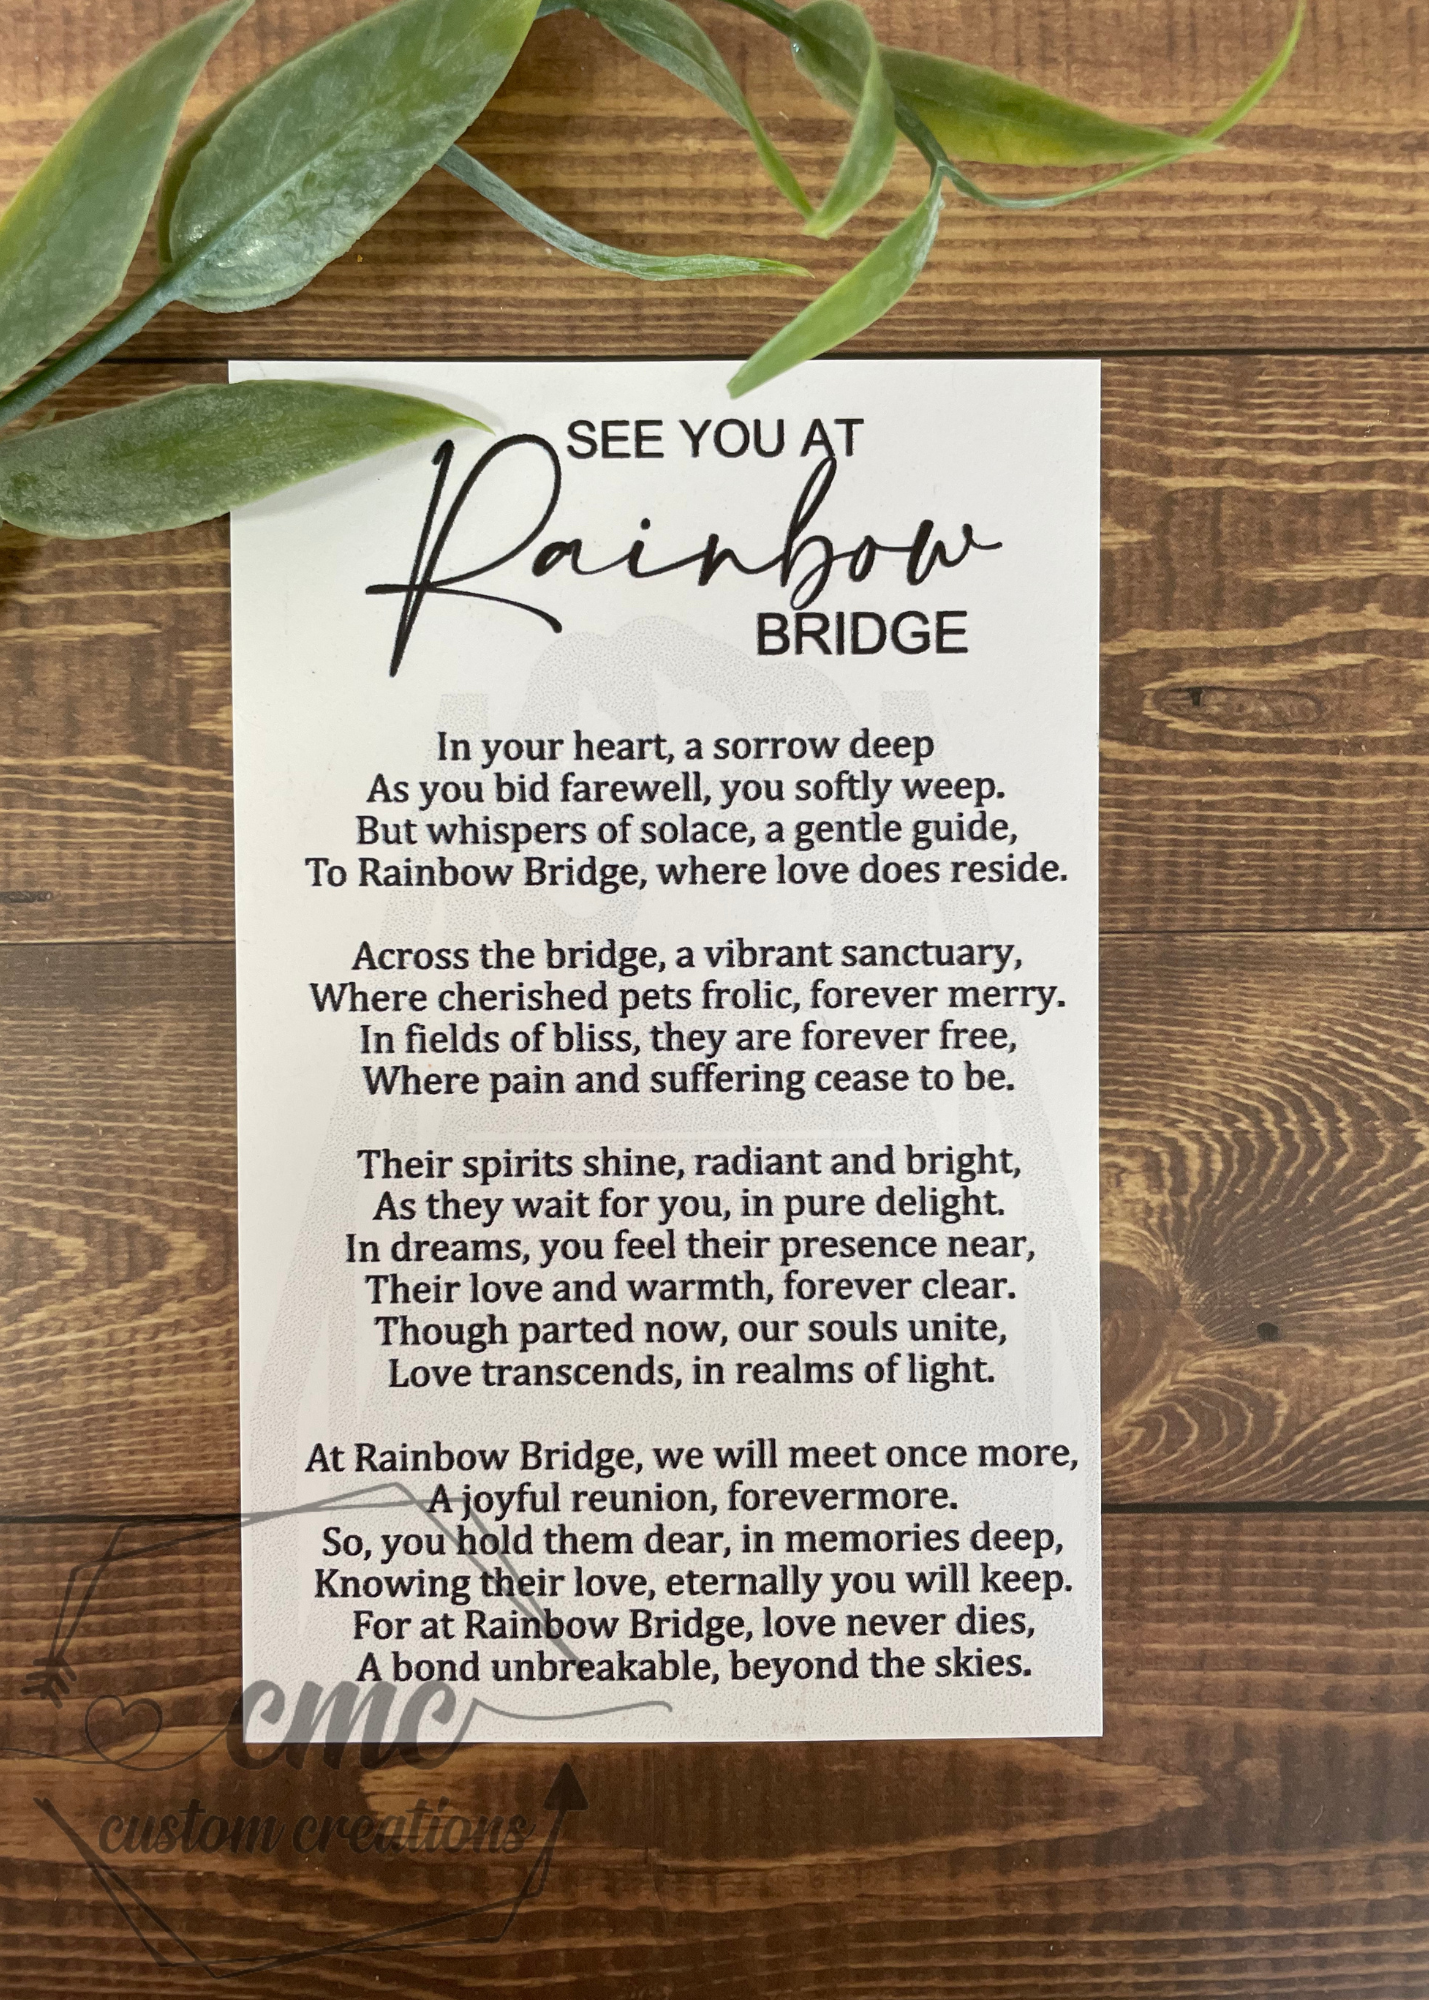 SEE YOU AT
Rainbow
BRIDGE
In your heart, a sorrow deep
As you bid farewell, you softly weep.
But whispers of solace, a gentle guide,
To Rainbow Bridge, where love does reside.
Across the bridge, a vibrant sanctuary,
Where cherished pets frolic, forever merry.
In fields of bliss, they are forever free,
Where pain and suffering cease to be.
Their spirits shine, radiant and bright,
As they wait for you, in pure delight.
In dreams, you feel their presence near,
Their love and warmth, forever clear.
Though parted now, our souls unite,
Love transcends, in realms of light.
At Rainbow Bridge, we will meet once more,
A joyful reunion, forevermore.
So, you hold them dear, in memories deep,
Knowing their love, eternally you will keep.
For at Rainbow Bridge, love never dies,
A bond unbreakable, beyond the skies.
cmc
custom creations